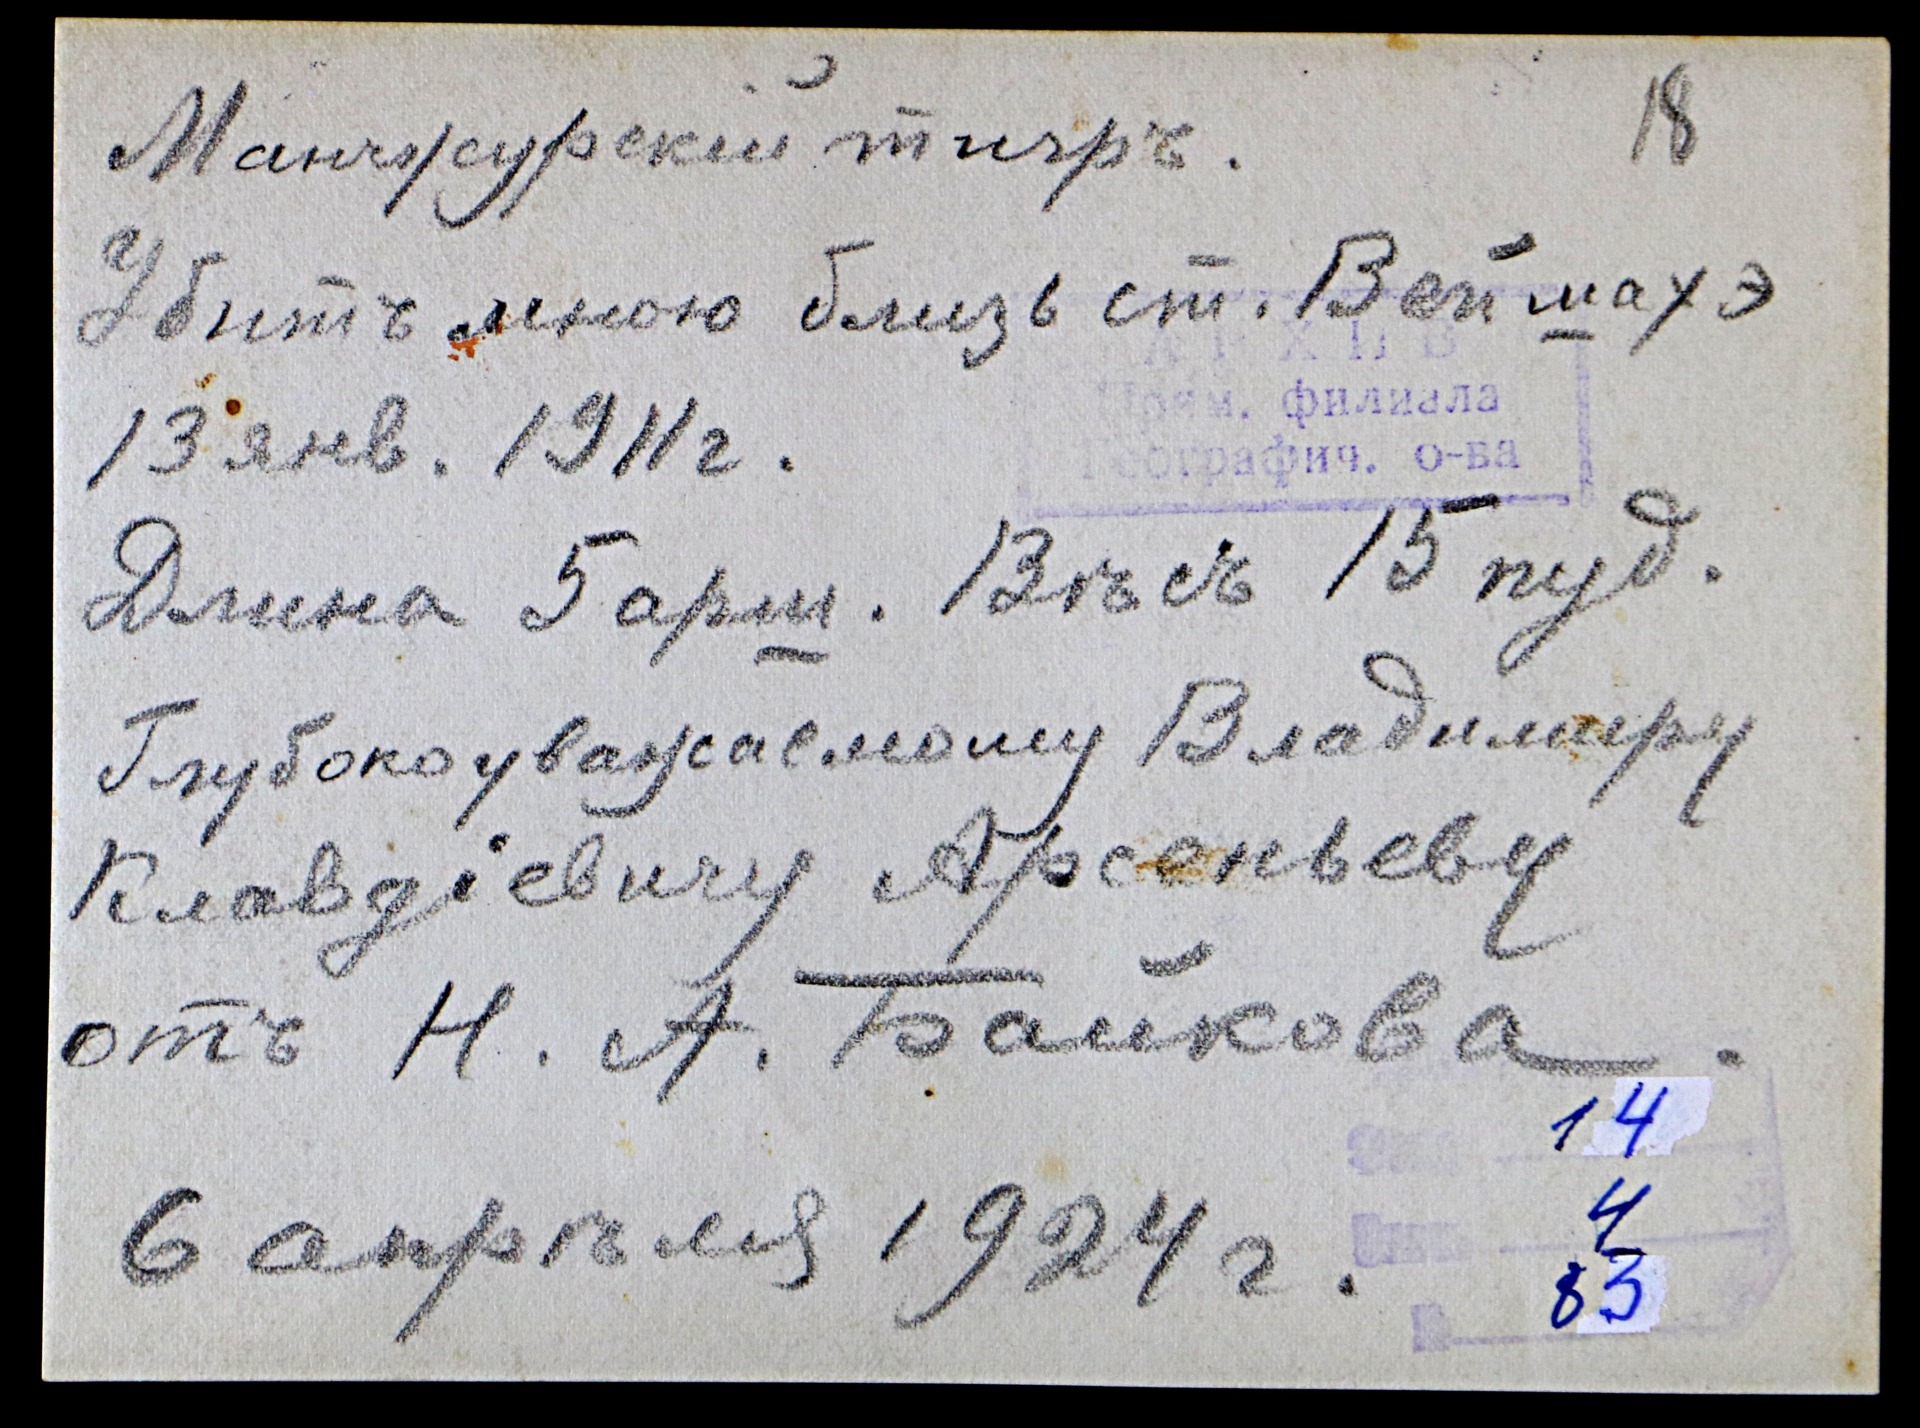 Манчжурскій тигръ.
18
Убитъ мною близь ст. Веймахэ
АРХИВ
Прим. филиала
Географич. о-ва
13 янв. 1911г.
Длина 5 арш. Вѣсъ 15 пуд.
Глубокоуважаемому Владимиру
Клавдіевичу Арсеньеву
отъ Н. А. Байкова.
14
4
83
6 апрѣля 1924 г.